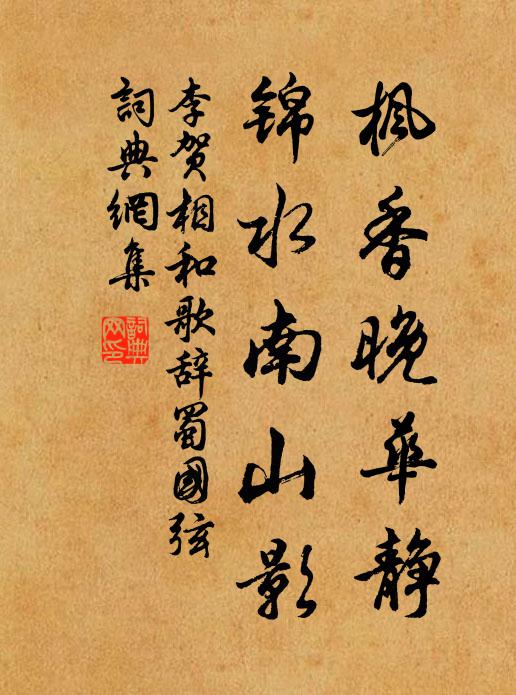 枫香晚華静
锦水南山影
李贺相和歌辞蜀國弦
詞典網集
詞典网印